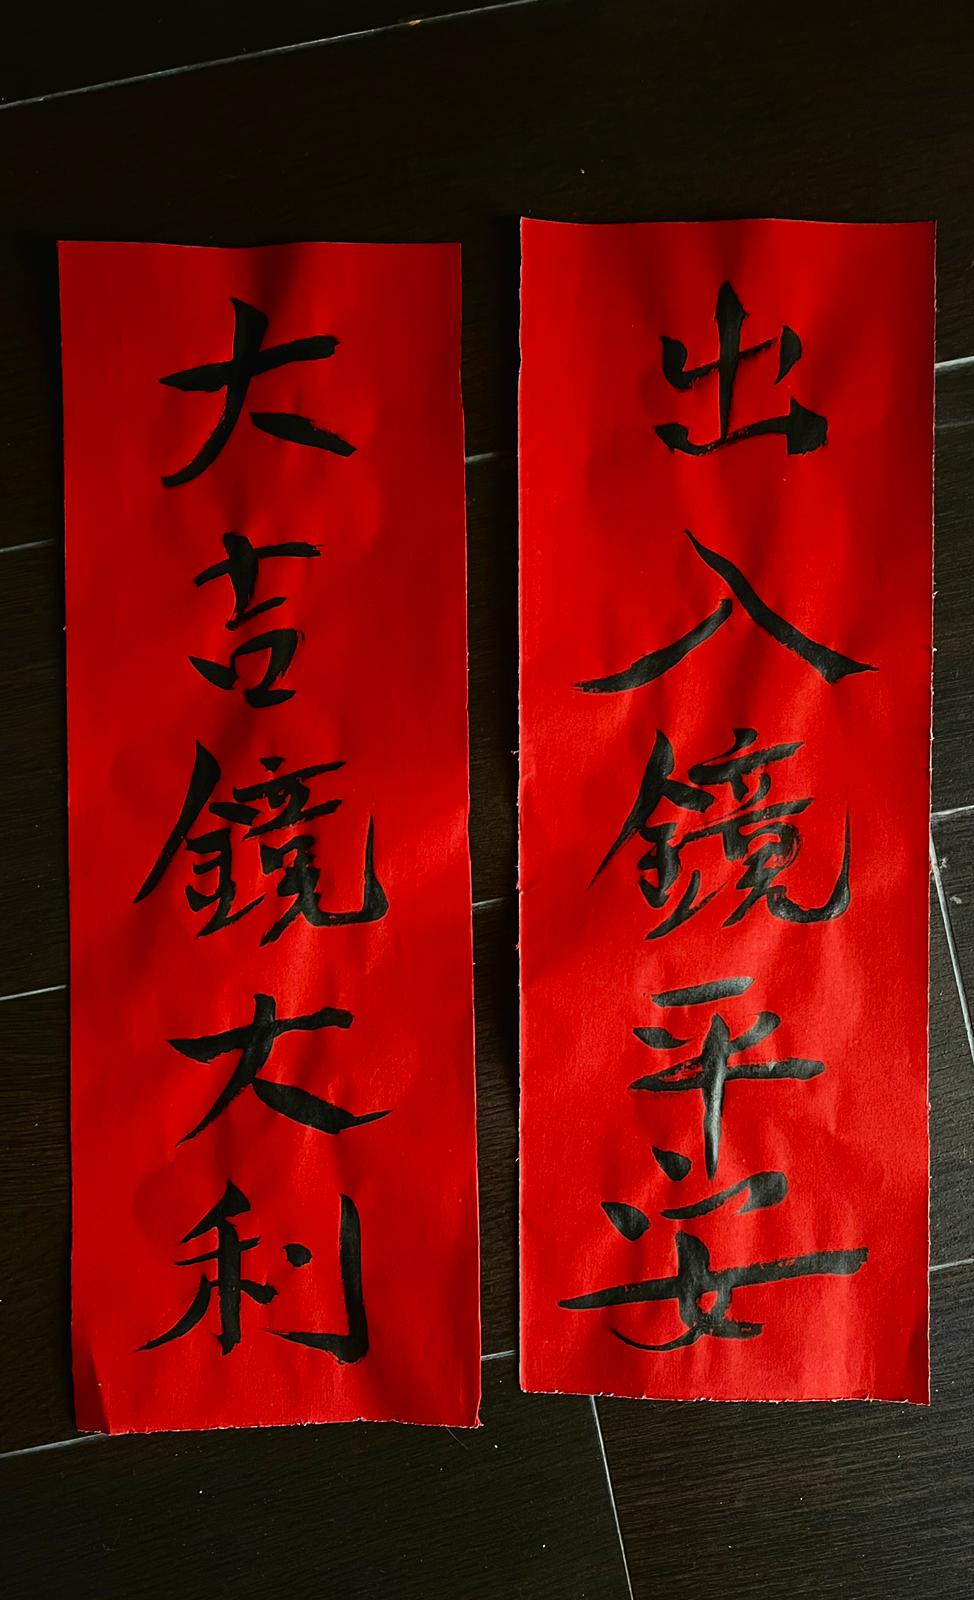 出入鏡平安
大吉鏡大利